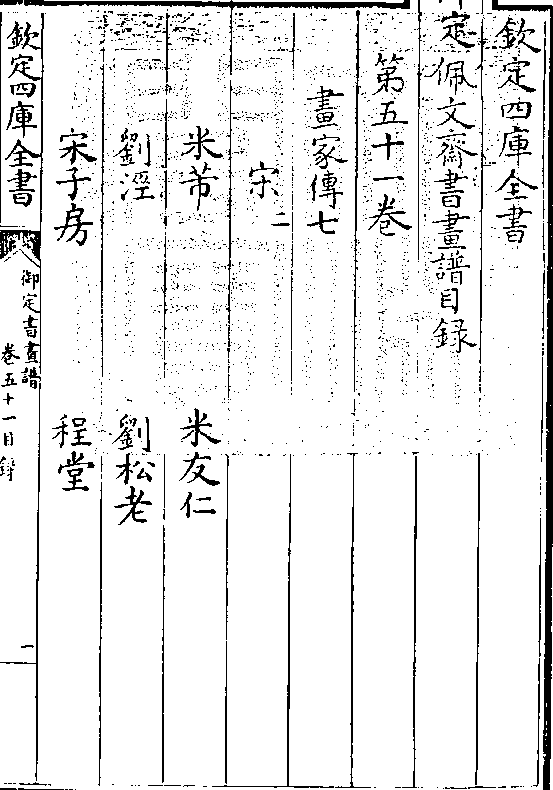 欽定四庫全書
御定佩文齋書畫譜目録
第五十一卷
畫家傳七
宋二
米芾 米友仁
劉涇 劉松老
宋子房 程堂
欽定四庫全書
御定書畫譜
卷五十一目録
一